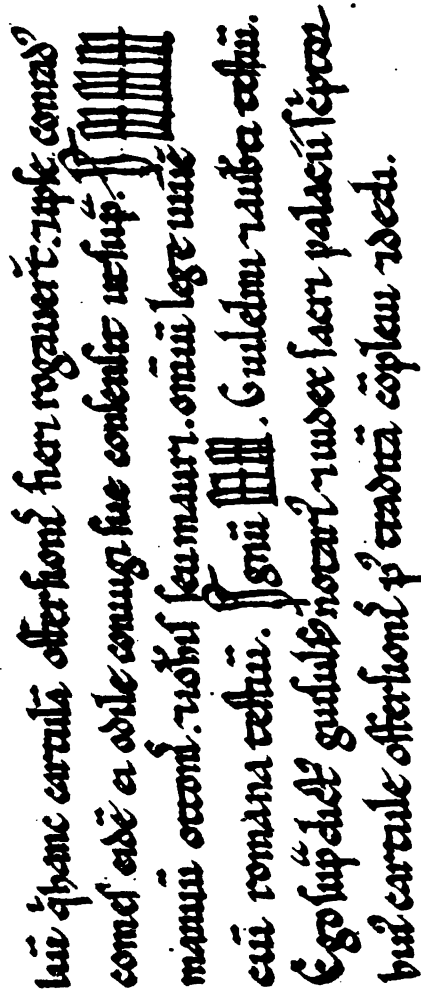 suū q hanc cartulā offersioniſ fieri rogauert̄. ipſe conrad⁹
comeſ eidē ei adile coniugi ſue conſenſit ut ſup̄. S
manuū ottoniſ. ſeu mauri. omniū lege uiuē
ciū romana teſtiū. Signū . Guilelmi teſtiū.
Ego ſup̄ dict⁹ gudulf⁹ notari⁹ ⁊ iudex ſacri palacii ſcptor
hui⁹ cartule offersioniſ p⁹ traditā cōpleui ⁊ dedi.